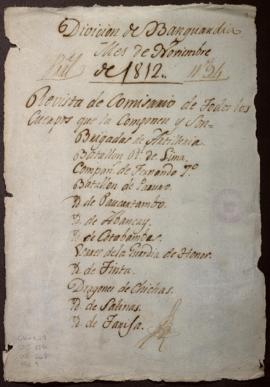 Divición de Banguardia
Mes de Nobimbre
de 1812. N.º 34
Revista de Comisario de todos los
Cuerpos que la Componen y Son
Brigadas de Artilleria
Batallon Rl. de Lima,
Compañ. de Fernando 7º
Batallon de
R. de Paucartambo.
R. de Abancay.
R. de Cotabambas.
de la Guardia de Honor.
R. de Tinta.
Dragones de Chichas.
R. de Salinas.
R. de Tarija.